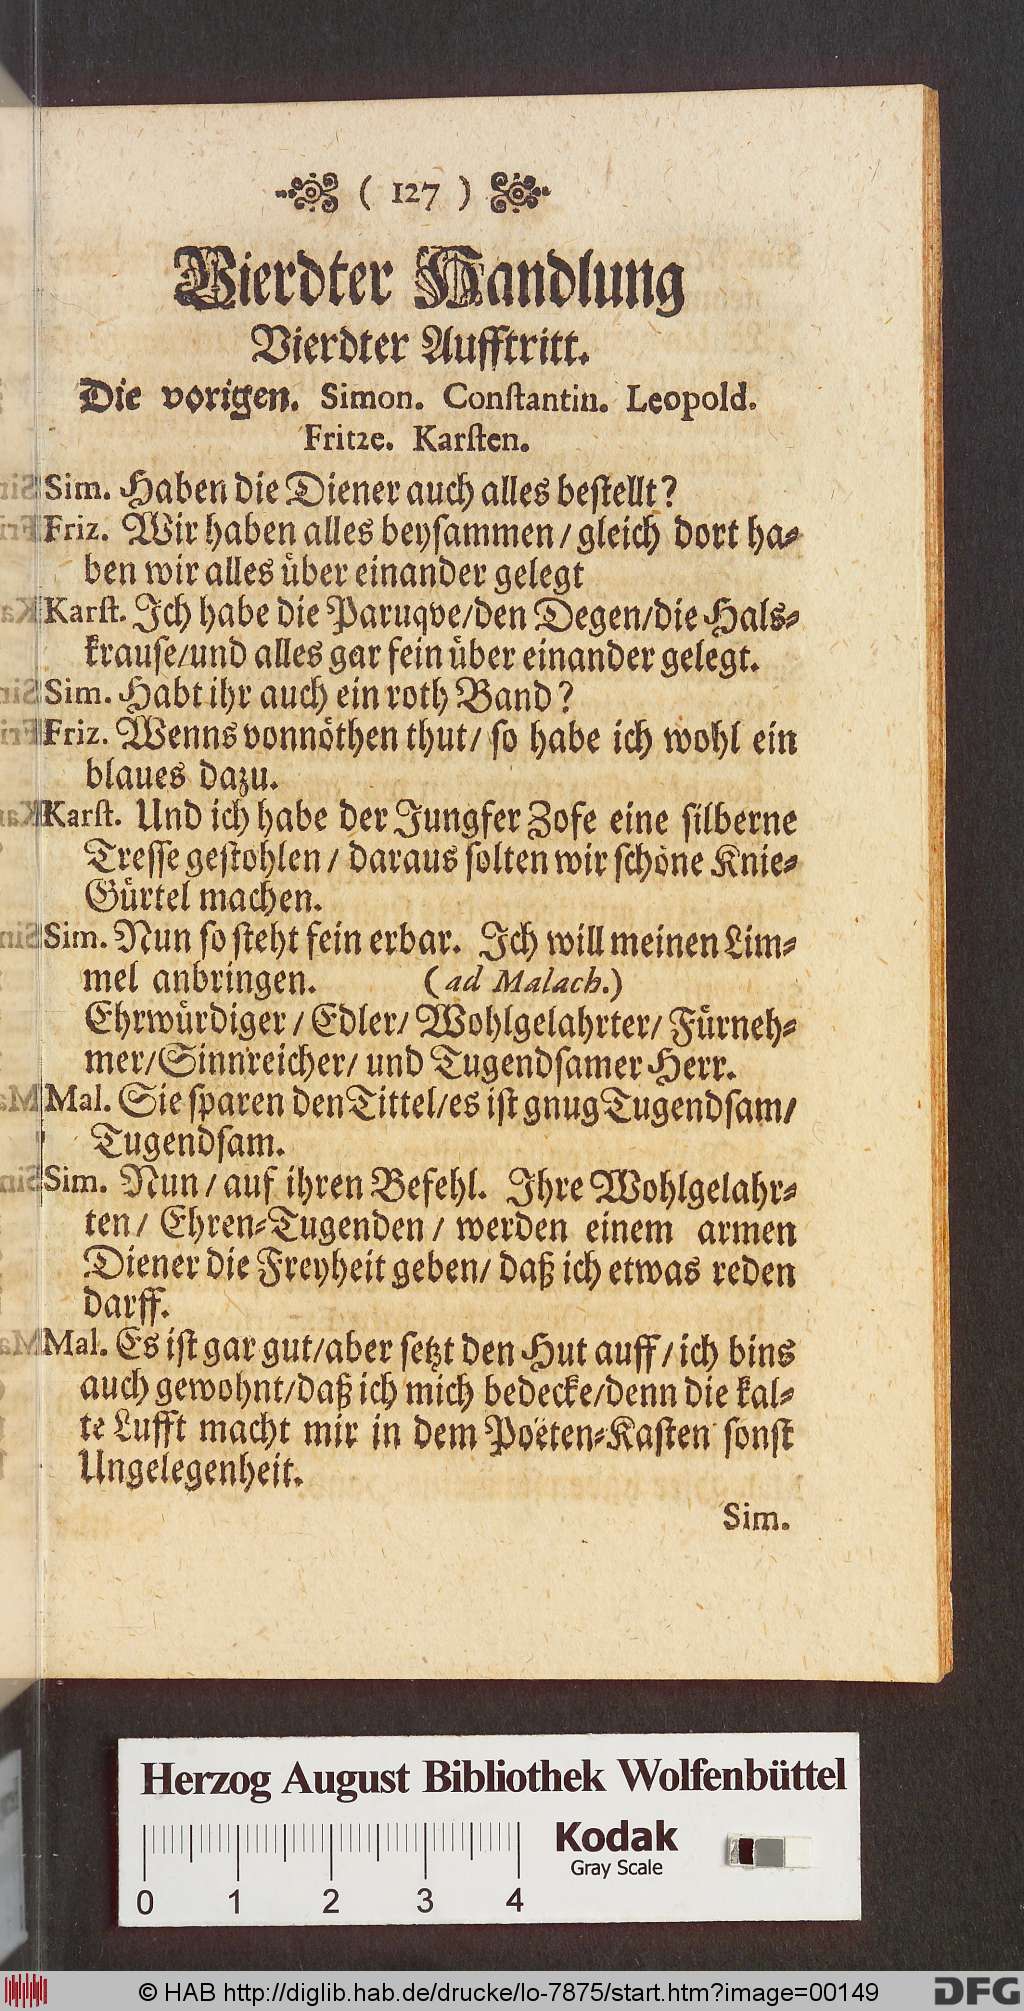 ( 127 )
Vierdter Handlung
Vierdter Aufftritt.
Die vorigen. Simon. Constantin. Leopold.
Fritze. Karsten.
Sim. Haben die Diener auch alles bestellt?
Friz. Wir haben alles beysammen / gleich dort ha-
ben wir alles über einander gelegt
Karst. Ich habe die Paruqve/den Degen/die Hals-
krause/und alles gar fein über einander gelegt.
Sim. Habt ihr auch ein roth Band?
Friz. Wenns vonnöthen thut/ so habe ich wohl ein
blaues dazu.
Karst. Und ich habe der Jungfer Zofe eine silberne
Tresse gestohlen / daraus solten wir schöne Knie-
Gürtel machen.
Sim. Nun so steht fein erbar. Ich will meinen Lim-
mel anbringen. (ad Malach.)
Ehrwürdiger / Edler/ Wohlgelahrter/ Fürneh-
mer/Sinnreicher/ und Tugendsamer Herr.
Mal. Sie sparen den Tittel/es ist gnug Tugendsam/
Tugendsam.
Sim. Nun / auf ihren Befehl. Ihre Wohlgelahr-
ten/ Ehren-Tugenden / werden einem armen
Diener die Freyheit geben/ daß ich etwas reden
darff.
Mal. Es ist gar gut/aber setzt den Hut auff / ich bins
auch gewohnt/daß ich mich bedecke/denn die kal-
te Lufft macht mir in dem Poëten-Kasten sonst
Ungelegenheit.
Sim.
Herzog August Bibliothek Wolfenbüttel
Kodak
Gray Scale
0 1 2 3 4
© HAB http://diglib.hab.de/drucke/lo-7875/start.htm?image=00149
DFG